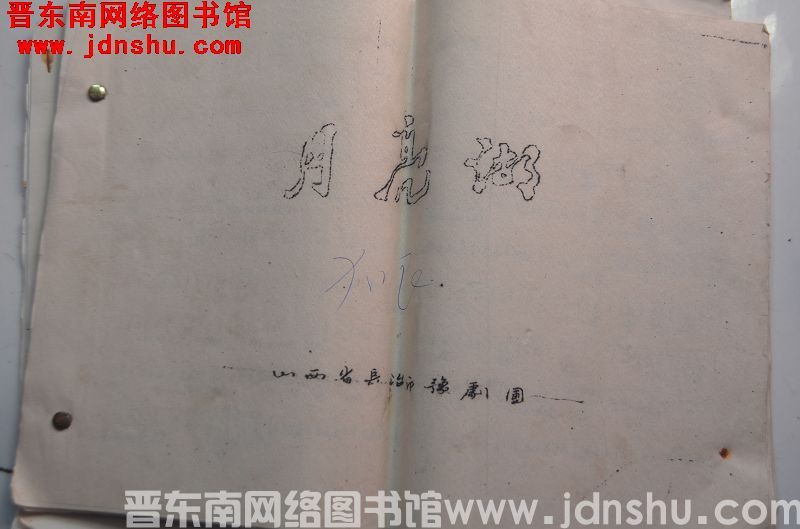 晋东南网络图书馆
www.jdnshu.com
月亮湖
山西省長治市豫劇團
晋东南网络图书馆www.jdnshu.com